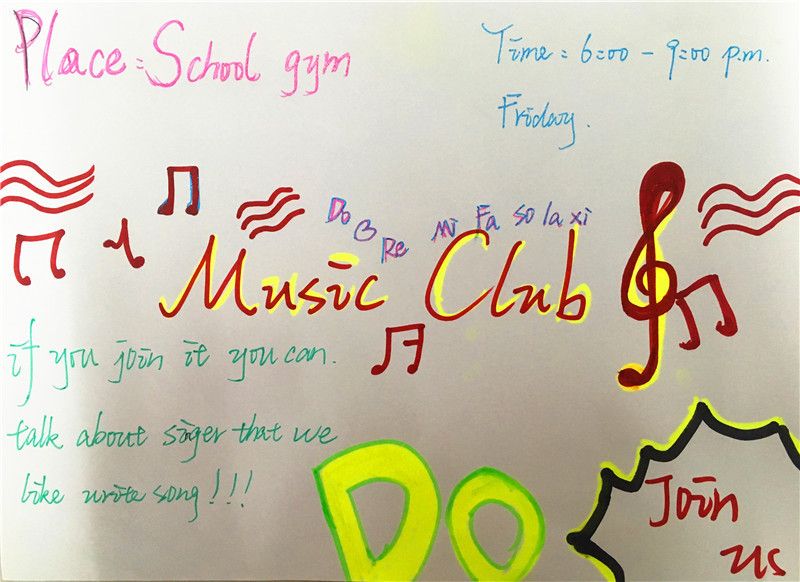 Place: School gym
Time: 6:00 - 9:00 p.m.
Friday.
Do Re Mi Fa So la xi
Music Club
if you join it you can.
talk about siger that we
like write song!!!
Do
Join
us